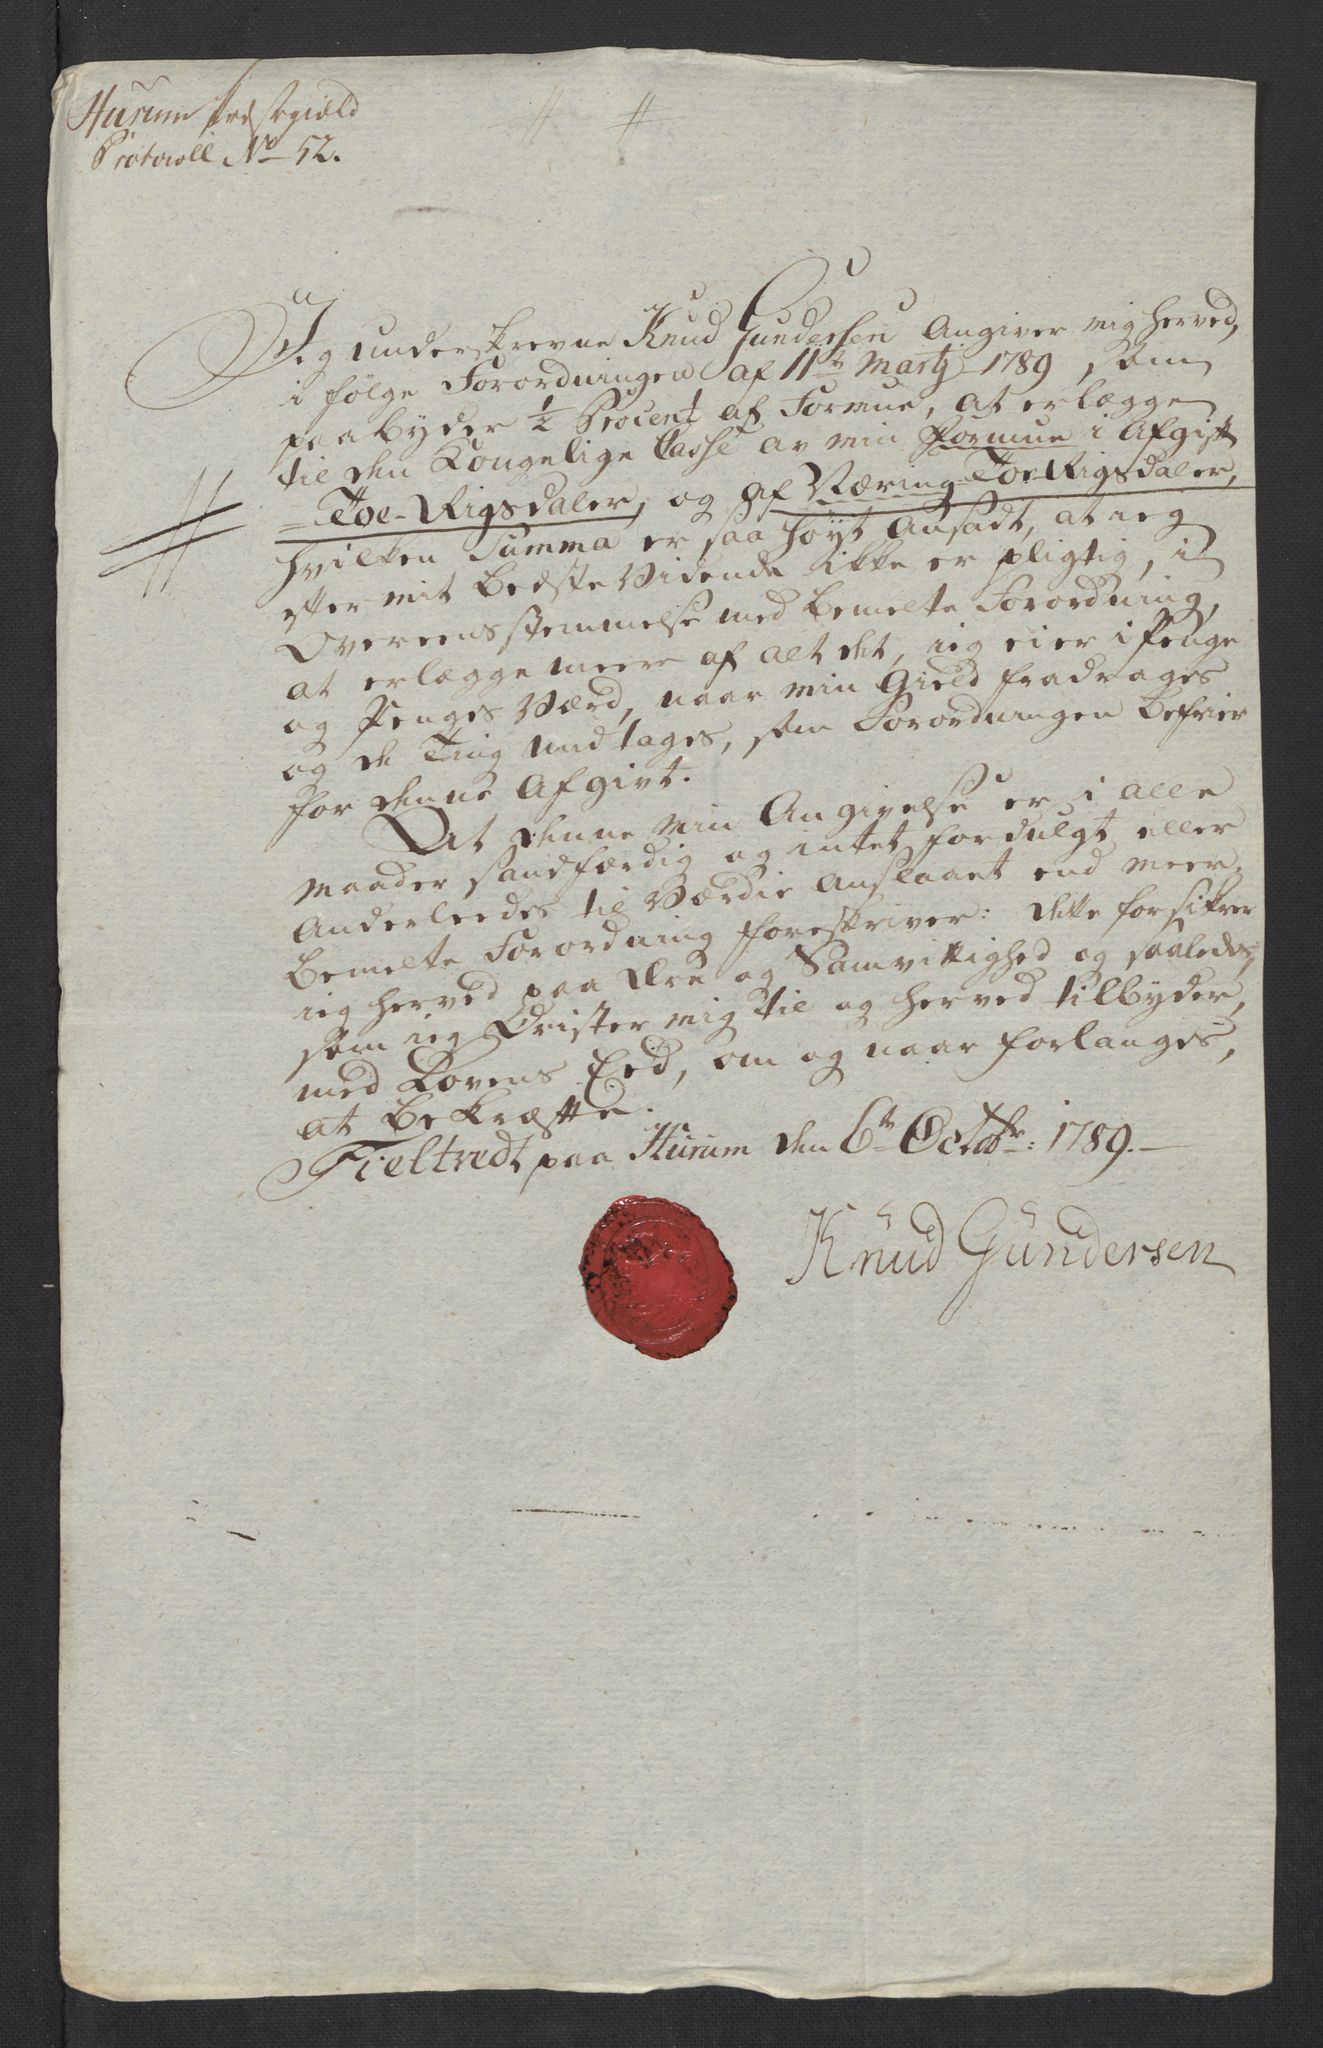 Hurum Præstegiæld
Protocoll No 52.
Jeg underskrevne Knud Gundersen Angiver mig herved,
i følge Forordningen af 11te Martj 1789, som
paabyder 1/2 Procent af Formue, at erlægge
til den Kongelige Casse av min Formue i Afgift
Toe Rigsdaler, og af Næring Toe Rigsdaler,
hvilken Summa er saa høyt Ansadt, at ieg
efter mit bedste Vidende ikke er pligtig, i
Overeensstemmelse med bemelte Forordning,
at erlægge meere af alt det, ieg eier i Penge
og Penges Værd, naar min Gield fradrages
og de Ting undtages, som Forordningen befrier
for denne Afgivt.
At denne min Angivelse er i alle
maader sandfærdig og intet fordulgt eller
Anderleedes til Værdie Anslaaet end meer-
bemelte Forordning foreskriver: dette forsikrer
ieg herved paa Ære og Samvittighed og saaledes,
som ieg Drister mig til og herved tilbyder,
med Lovens Eed, om og naar forlanges,
at bekræfte.
Fieltvedt paa Hurum den 6te Octobr: 1789.
Knud Gundersen